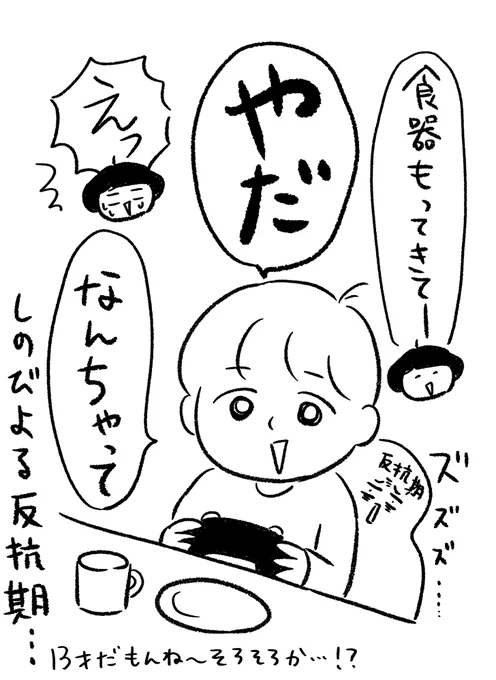 食器もってきてー
やだ
えっ
なんちゃって
反抗期
ズズズ……
しのびよる反抗期…
13才だもんね〜そろそろか…!?